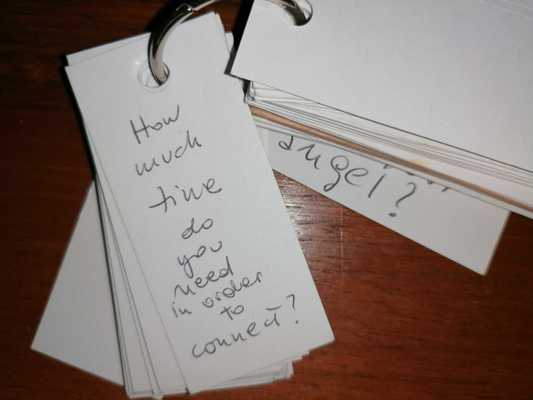 How
much
time
do
you
need
in order
to
connect?
angel?